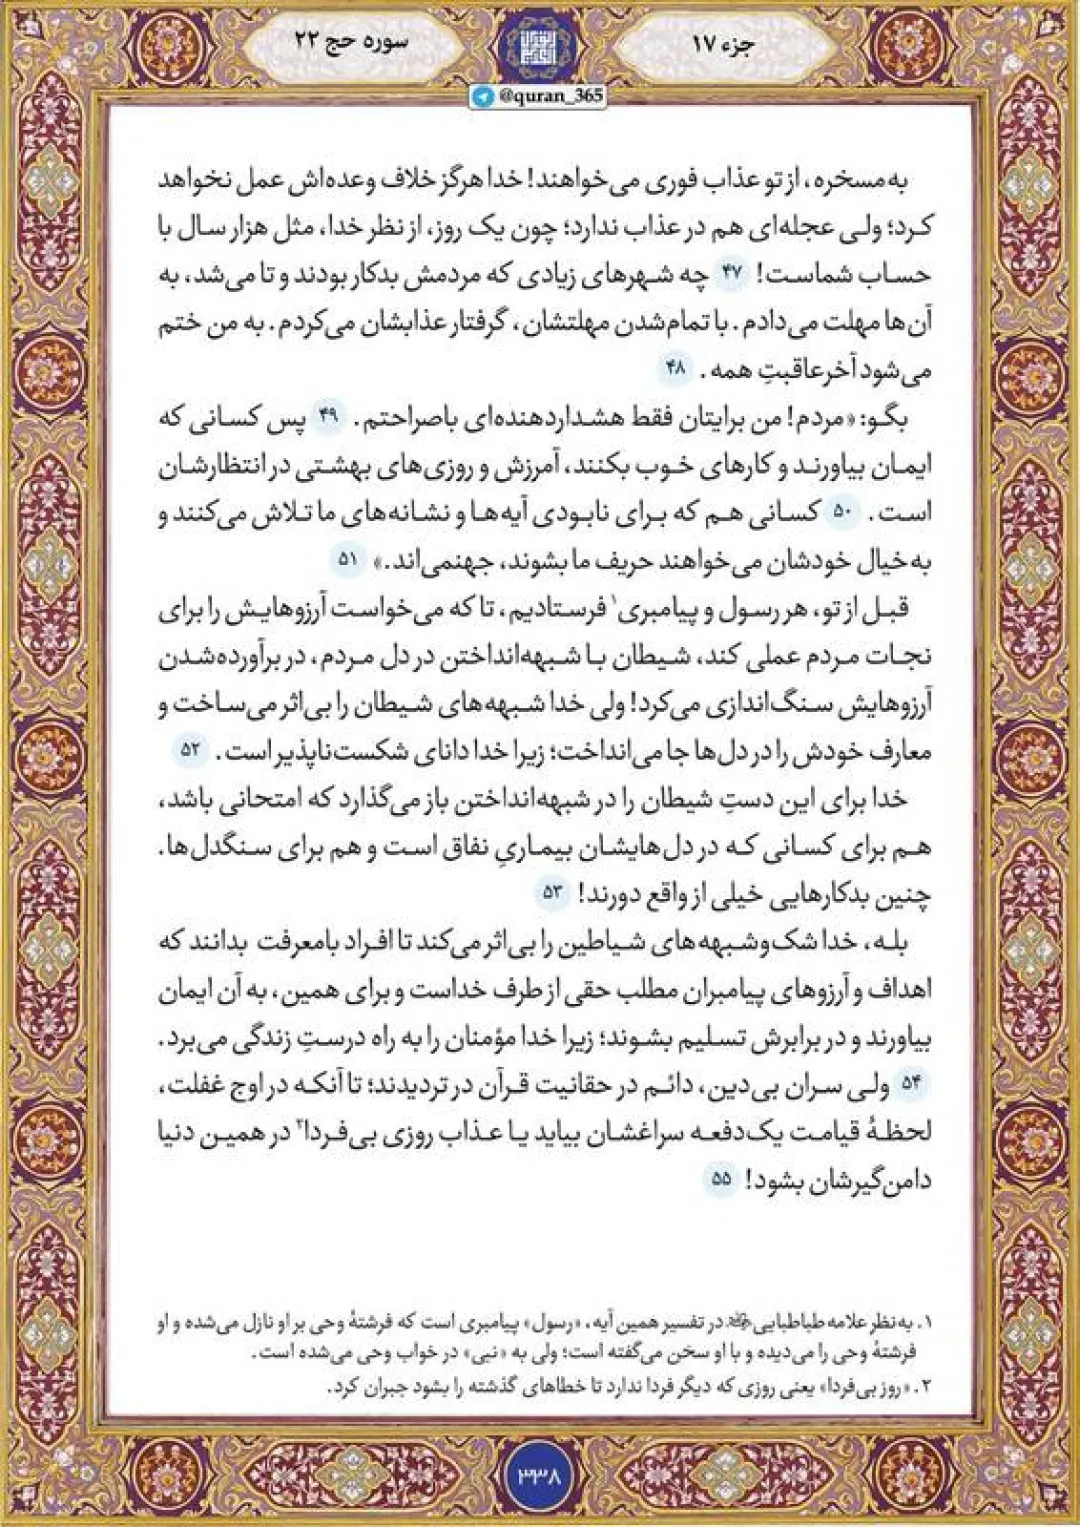 جزء ۱۷
سوره حج ۲۲
@quran_365
به‌مسخره، از تو عذاب فوری می‌خواهند! خدا هرگز خلاف وعده‌اش عمل نخواهد
کرد؛ ولی عجله‌ای هم در عذاب ندارد؛ چون یک روز، از نظر خدا، مثل هزار سال با
حساب شماست! ۴۷ چه شهرهای زیادی که مردمش بدکار بودند و تا می‌شد، به
آن‌ها مهلت می‌دادم. با تمام‌شدن مهلتشان، گرفتار عذابشان می‌کردم. به من ختم
می‌شود آخرعاقبتِ همه. ۴۸
بگو: «مردم! من برایتان فقط هشداردهنده‌ای باصراحتم. ۴۹ پس کسانی که
ایمان بیاورند و کارهای خوب بکنند، آمرزش و روزی‌های بهشتی در انتظارشان
است. ۵۰ کسانی هم که برای نابودی آیه‌ها و نشانه‌های ما تلاش می‌کنند و
به‌خیال خودشان می‌خواهند حریف ما بشوند، جهنمی‌اند.» ۵۱
قبل از تو، هر رسول و پیامبری۱ فرستادیم، تا که می‌خواست آرزوهایش را برای
نجات مردم عملی کند، شیطان با شبهه‌انداختن در دل مردم، در برآورده‌شدن
آرزوهایش سنگ‌اندازی می‌کرد! ولی خدا شبهه‌های شیطان را بی‌اثر می‌ساخت و
معارف خودش را در دل‌ها جا می‌انداخت؛ زیرا خدا دانای شکست‌ناپذیر است. ۵۲
خدا برای این دستِ شیطان را در شبهه‌انداختن باز می‌گذارد که امتحانی باشد،
هم برای کسانی که در دل‌هایشان بیماریِ نفاق است و هم برای سنگدل‌ها.
چنین بدکارهایی خیلی از واقع دورند! ۵۳
بله، خدا شک‌وشبهه‌های شیاطین را بی‌اثر می‌کند تا افراد بامعرفت بدانند که
اهداف و آرزوهای پیامبران مطلب حقی از طرف خداست و برای همین، به آن ایمان
بیاورند و در برابرش تسلیم بشوند؛ زیرا خدا مؤمنان را به راه درستِ زندگی می‌برد.
۵۴ ولی سران بی‌دین، دائم در حقانیت قرآن در تردیدند؛ تا آنکه در اوج غفلت،
لحظهٔ قیامت یک‌دفعه سراغشان بیاید یا عذاب روزی بی‌فردا۲ در همین دنیا
دامن‌گیرشان بشود! ۵۵
۱. به‌نظر علامه طباطبایی در تفسیر همین آیه، «رسول» پیامبری است که فرشتهٔ وحی بر او نازل می‌شده و او
فرشتهٔ وحی را می‌دیده و با او سخن می‌گفته است؛ ولی به «نبی» در خواب وحی می‌شده است.
۲. «روز بی‌فردا» یعنی روزی که دیگر فردا ندارد تا خطاهای گذشته را بشود جبران کرد.
۳۳۸